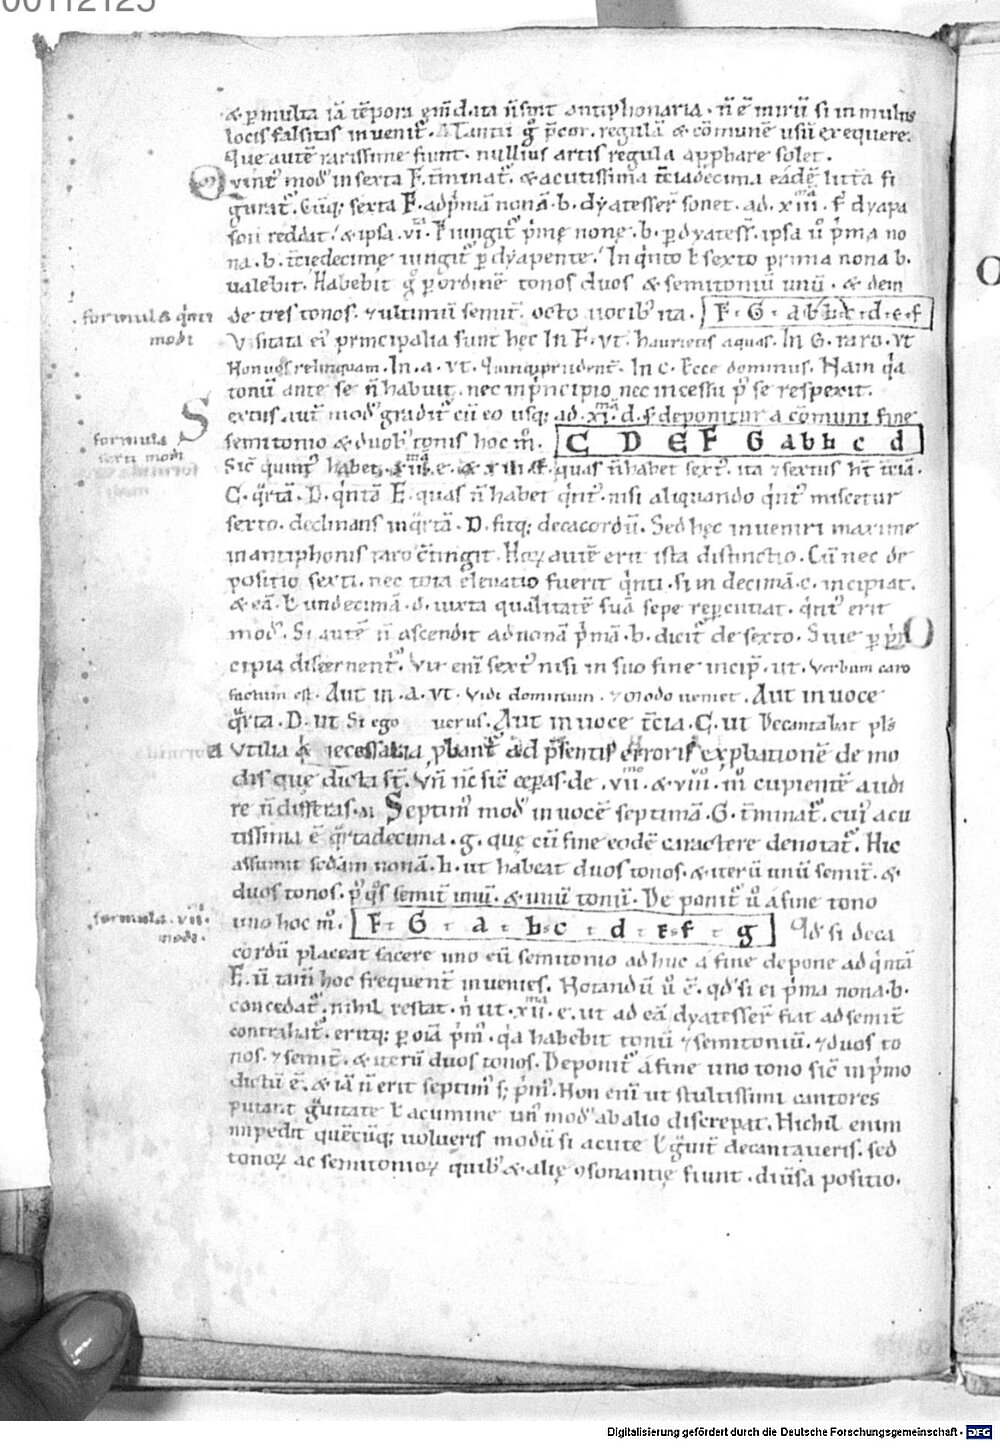 00112125
& p multa iā tēpora em̄data n̄ sint antiphonaria · n̄ ē mirū si in multis
locis falsitas inveniť. A Tantū g̊ p̄cor. regulā & cōmunē usū exequere.
Que autē rarissime fiunt. nullius artis regula appbare solet.
Qvint᾽ mod᾽ in sexta F. t̄minať. & acutissima t̄ciadecima eadē litt̄a fi
gurať. Cūq; sexta F. ad p̄mā nonā. b. dyatesser̄ sonet. ad. xiii. f dyapa
son reddat. & ipsa. vi. F iungiť p̄mę none. b. p dyatess̄. ipsa ů p̄ma no
na. b. t̄ciedecime iungiť p dyapente. In q̍nto ł sexto prima nona b.
ualebit. Habebit g̊ p ordinē tonos duos & semitoniū unū. & dein
formula q̍nti
modi
de tres tonos. 7 ultimū semiť. octo uocib᾽ ita. F · G · a b h c · d · e · f
Vsitata ei᾽ principalia sunt hęc In F. vt. haurietis aquas. In G. raro. vt
Non vos relinquam. In. a. vt. Quinq; prudent̄. In c. Ecce dominus. Nam q̍a
tonū ante se n̄ habuit. nec in p̍ncipio nec in cessu p᾽ se respexit.
Sextus aut̄ mod᾽ gradiť cū eo usq; ad. xi. d. f deponitur a cōmuni fine
formula
sexti modi
semitonio & duob᾽ tonis hoc m̊. C D E F G a b h c d
Sic̄ quint᾽ habet. xii. e. & xiii. f. quas n̄ habet sext᾽. ita 7 sextus ht̄ t̄ciā.
C. q̍rtā. D. q̍ntā E. quas n̄ habet q̍nt᾽. nisi aliquando q̍nt᾽ miscetur
sexto. declinans in q̍rtā. D. fitq; decacordū. Sed hęc inveniri maxime
in antiphonis raro c̄tingit. Hoꝝ autē erit ista distinctio. Cū nec de
positio sexti. nec tota elevatio fuerit q̍nti. si in decimā. c. incipiat.
& eā. ł undecimā. d. iuxta qualitatē suā sepe repercutiat. q̍nt᾽ erit
mod᾽. Si autē n̄ ascendit ad nonā p̍mā. b. diciť de sexto. Sive p p̍n
cipia discernenť. Vix enī sext᾽ nisi in suo fine incip̄. ut. Verbum caro
factum est. Aut in. a. vt. Vidi dominum. 7 Modo veniet. Aut in voce
q̍rta. D. ut Si ego verus. Aut in voce t̄cia. C. ut Decantabat pl̄s
Vtilia & necessaria pbanť ad p̄sentis erroris expbationē de mo
dis que dicta sť. Vn̄ nc̄ sic̄ cępas. de. vii. & viii. m̊ cupientē audi
re n̄ differas. M Septim᾽ mod᾽ in vocē septimā. G. t̄minať. cui᾽ acu
tissima ē q̍rtadecima. g. que cū fine eodē caractere denotať. Hic
assumit sedām nonā. h. ut habeat duos tonos. & iterū unū semiť. &
duos tonos. p᾽ q̍s semiť unū. & unū tonū. De poniť ů a fine tono
formula. vii.
modi.
uno hoc m̊. F · G · a · h · c · d · e · f · g Qd᾽ si deca
cordū placeat facere uno eū semitonio adhuc a fine depone ad q̍ntā
E. n̄ tam̄ hoc frequenť invenies. Notandū ů ē. qd᾽ si ei p̍ma nona. b.
concedať. nihil restat. n̍ ut. xii. e. ut ad eā dyatesser̄ fiat ad semiť
contrahať. eritq; p oīa p̍m᾽. q̍a habebit tonū 7 semitoniū. 7 duos to
nos. 7 semiť. & iterū duos tonos. Deponiť a fine uno tono sic̄ in p̍mo
dictū ē. & iā n̄ erit septim᾽ s; p̍m᾽. Non enī ut stultissimi cantores
putant g̍vitate ł acumine un᾽ mod᾽ ab alio discrepat. Nichil enim
impedit quēcūq; uolueris modū si acute ł g̍viť decantaveris. sed
tonoꝝ ac semitonioꝝ quib᾽ & alię 9sonantię fiunt. div̄sa positio.
Digitalisierung gefördert durch die Deutsche Forschungsgemeinschaft - DFG